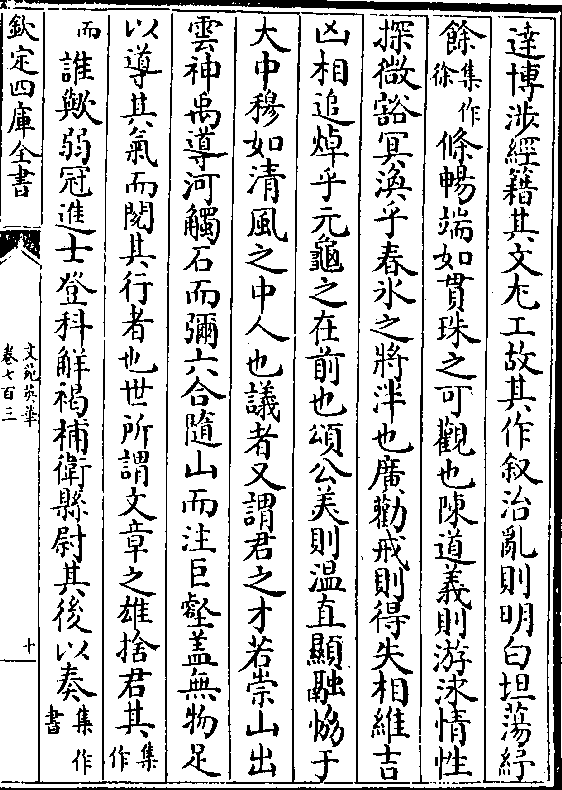 達博涉經籍其文尤工故其作叙治亂則明白坦蕩紓
餘集作徐條暢端如貫珠之可觀也陳道義則游泳情性
探微豁冥渙乎春氷之將泮也廣勸戒則得失相維吉
凶相追焯乎元龜之在前也頌公美則温直顯融恊于
大中穆如清風之中人也議者又謂君之才若崇山出
雲神禹導河觸石而彌六合隨山而注巨壑盖無物足
以導其氣而閲其行者也世所謂文章之雄捨君其集作
而誰歟弱冠進士登科解褐補衛縣尉其後以奏集作書
欽定四庫全書
文苑英華
卷七百三
十